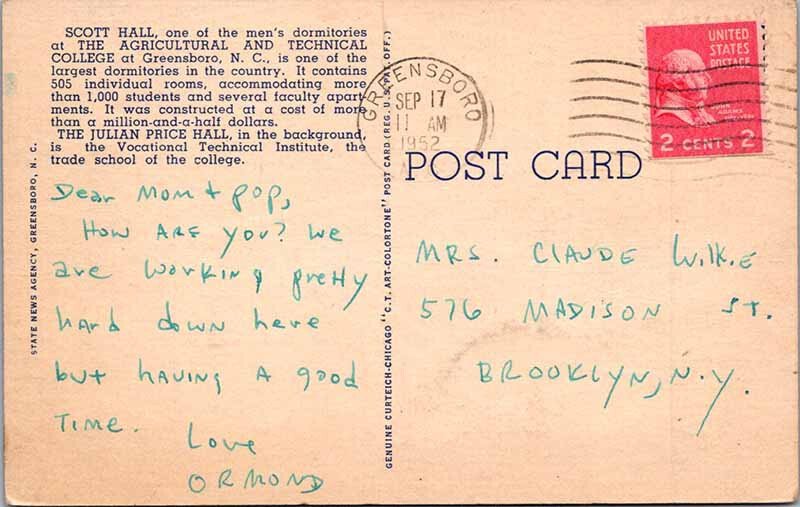 SCOTT HALL, one of the men's dormitories
at THE AGRICULTURAL AND TECHNICAL
COLLEGE at Greensboro, N. C., is one of the
largest dormitories in the country. It contains
505 individual rooms, accommodating more
than 1,000 students and several faculty apart
ments. It was constructed at a cost of more
than a million-and-a-half dollars.
THE JULIAN PRICE HALL, in the background,
is the Vocational Technical Institute, the
trade school of the college.
STATE NEWS AGENCY, GREENSBORO, N. C.
Dear Mom + pop,
How ARE you? We
are working pretty
hard down here
but HAVING A good
TIME.
Love
ORMOND
GENUINE CURTEICH-CHICAGO "C.T. ART-COLORTONE" POST CARD (REG. U.S. PAT. OFF.)
GREENSBORO
SEP 17
11 AM
1952
UNITED
STATES
POSTAGE
JOHN
ADAMS
2 CENTS 2
POST CARD
MRS. CLAUDE Wilkie
576 MADISON ST.
BROOKLYN, N.Y.